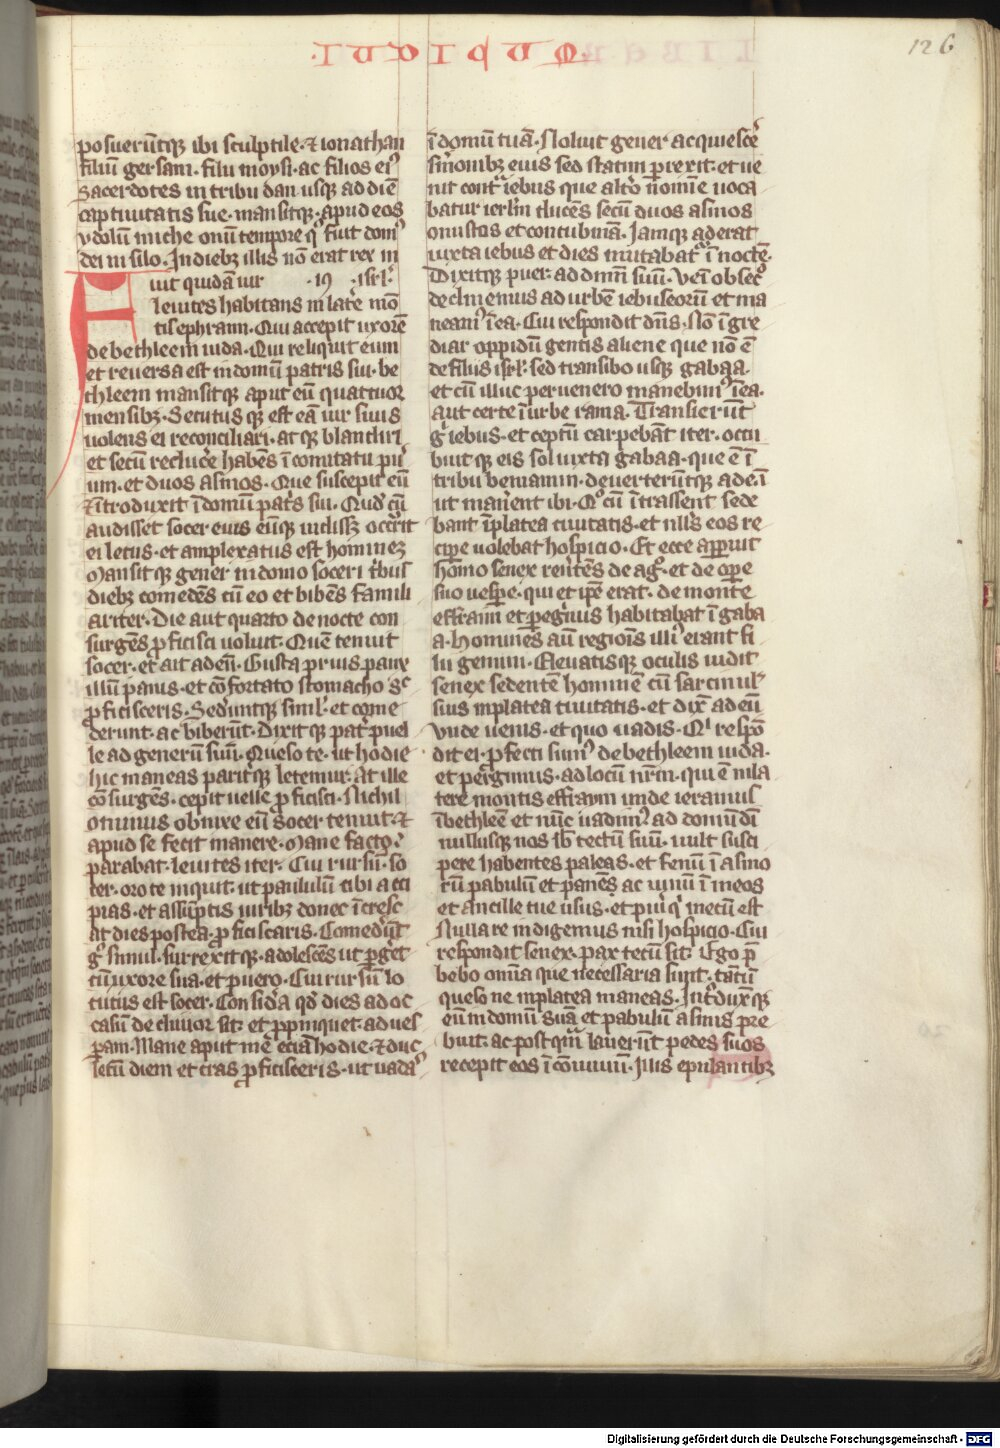 IUDICUM
126
posuerūtqꝫ ibi sculptile· ⁊ ionathan
filiū gersam· filii moysi· ac filios eiꝰ
Sacerdotes in tribu dan usqꝫ ad diē
captiuitatis sue· mansitqꝫ· apud eos
ydolū miche om̄i tempore qͦ fuit domꝰ
dei in silo· In diebꝫ illis nō erat rex in
Fuit quidā uir ·19· isrl·
leuites habitans in latͤe mō
tis ephraim· Qui accepit uxorē
de bethleem iuda· Qui reliquit eum
et reuersa est in domū patris sui· be
thleem mansitqꝫ aput eū quattuor
mensibꝫ· Secutusqꝫ est eā uir suus
uolens ei reconciliari· atqꝫ blandiri
et secū reducͤe habēs ī comitatu puͤ
um· et duos asinos· Que suscepit eū
⁊ ītroduxit ī domū patͥs sui· Quod cū
audisset socer eius eūqꝫ uidissꝫ occͬrit
ei letus· et amplexatus est hominez
Mansitqꝫ gener in domo soceri tͥbus
diebꝫ comedēs cū eo et bibēs famili
ariter· Die aut quarto de nocte con
surgēs ꝓficisci uoluit· Quē tenuit
socer· et ait ad eū· Gusta prius pauxͥ
illū panis· et cōfortato stomacho sͨ
ꝓficisceris· Sederuntqꝫ siml· et come
derunt· ac biberūt· Dixitqꝫ patͬ puel
le ad generū suū· Queso te· ut hodie
hic maneas paritͬqꝫ letemur· At ille
cōsurgēs· cepit uelle ꝓficisci· Nichil
ominus obnixe eū socer tenuit· ⁊
apud se fecit manere· Mane facto·
parabat· leuites iter· Cui rursū· so
cer· oro te inquit· ut paululū cibi acci
pias· et assūptis uiribꝫ donec īcresc
at dies postea· ꝓficiscaris· Comederūt
gͦ simul· surrexitqꝫ· adolescēs ut ꝑgͤet
cū uxore sua· et puero· Cui rursū lo
cutus est socer· Considͤa qd dies ad oc
casū decliuior sit· et ꝓpinquet· ad ues
ꝑam· Mane aput mē eciā hodie· ⁊ duc
letū diem et cras ꝓficisceris· ut uadaˢ
ī domū tuā· Noluit gener acquiescͤe
sͬmonibꝫ eius sed statim ꝑrexit· et ue
nit contͣ iebus que altͦo nomīe uoca
batur ierl̄m ducēs secū duos asinos
onustos et concubinā· Jamqꝫ aderat
iuxta iebus et dies mutabatͬ ī noctē·
Dixitqꝫ puer· ad dn̄m suū· Veni obsecͦ
declinemus ad urbē iebuseorū et ma
neamꝰ ī ea· Cui respondit dn̄s· Nō īgre
diar oppidū gentis aliene que nō ē
de filiis isrl· sed transibo usqꝫ gabaa·
et cū illuc peruenero manebimꝰ ī ea·
aut certe ī urbe rama· Transierūt
gͦ iebus· et ceptū carpebāt iter· occu
buitqꝫ eis sol iuxta gabaa· que ē ī
tribu beniamin· deuerterūtqꝫ ad eā
ut manͤent ibi· Qͦ cū ītrassent sede
bant ī platea ciuitatis· et nllꝰ eos re
cipe uolebat hospicio· Et ecce apparuit
homo senex reutͤens de agͦ· et de opͤe
suo uespͤe· qui et ipē erat· de monte
effraim et ꝑegͥnus habitabat ī gaba
a· Homines aut regiois illiꝰ erant fi
lii gemini· Eleuatisqꝫ oculis uidit
senex sedentē hominē cū sarcinul
suis in platea ciuitatis· et dixͭ ad eū
Vnde uenis· et quo uadis· Qͥ respō
dit ei· ꝓfecti sumꝰ de bethleem iuda·
et pergimus· ad locū nr̄m· qui ē in la
tere montis effraym unde ieramus
ī bethleē et nūc uadimꝰ ad domū dī
nullusqꝫ nos sb tectū suū· uult susci
pere habentes paleas· et fenū ī asino
rū pabulū et panēs ac uinū ī meos
et ancille tue usus· et puͥ qͥ mecū est
Nulla re indigemus nisi hospicio· Cui
respondit senex· pax tecū sit· Ego p̄
bebo omīa que necessaria sunt· tātū
queso ne in platea maneas· Intͦduxͭqꝫ
eū in domū suā et pabulū asinis pre
buit· ac postqm̄ lauerūt pedes suos
recepit eos ī cōuiuiū· Illis epulantibꝫ
Digitalisierung gefördert durch die Deutsche Forschungsgemeinschaft - DFG